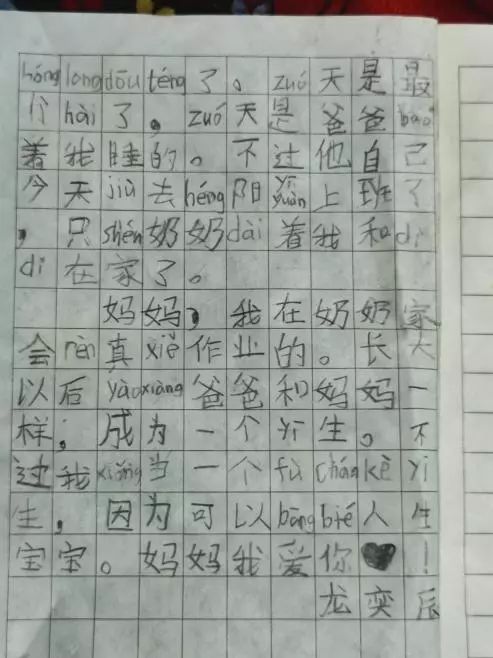 hóng long dōu téng了。zuó天是最
亻hài了。zuó天是爸爸bao
着我睡的。不过他自己
今天jiù去héng阳yī yuàn上班了
，只shèn奶奶dài着我和dì
di在家了。
妈妈，我在奶奶家
会rèn真xiě作业的。长大
以后yào xiàng爸爸和妈妈一
样，成为一个yī生。不
过我xiǎng当一个fù chǎn kē yī
生，因为可以bāng bié人生
宝宝。妈妈我爱你❤！
龙奕辰